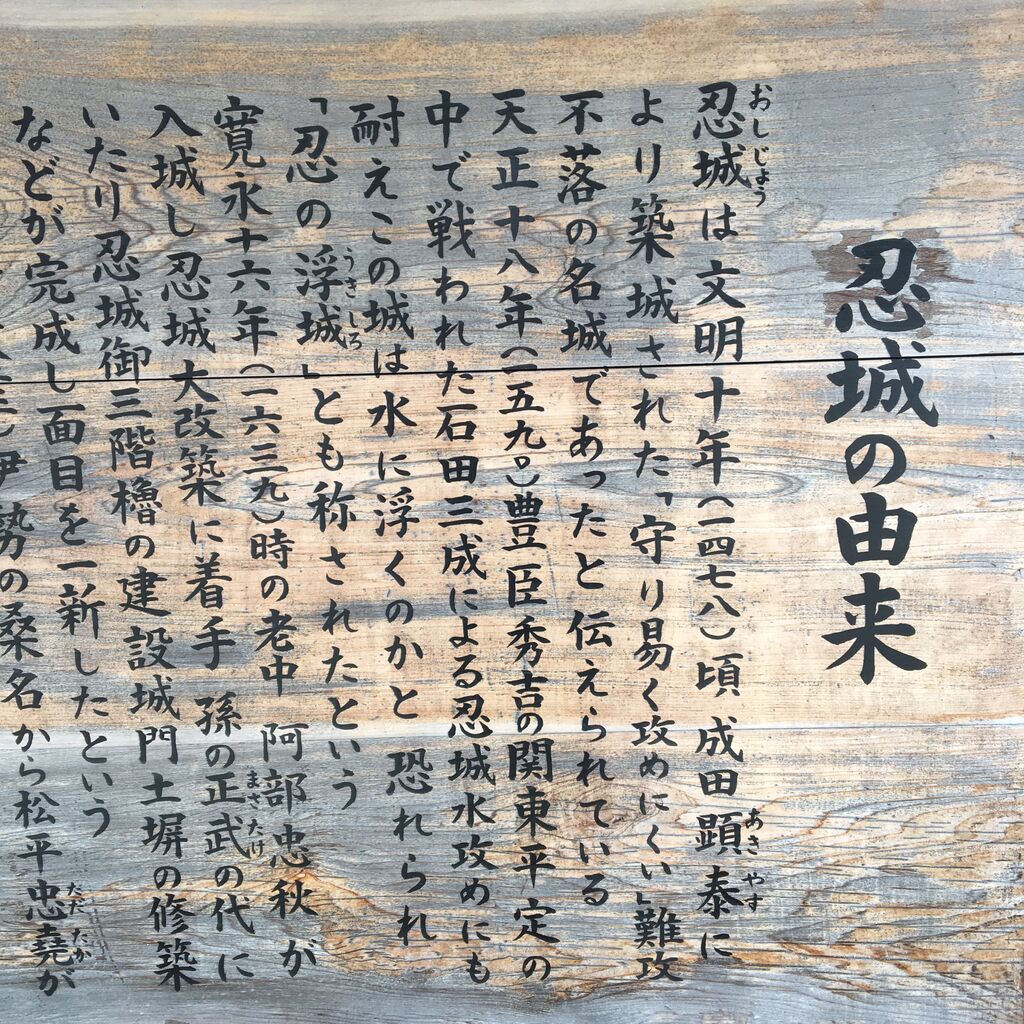 忍城の由来
おしじょう
あきやす
忍城は文明十年(一四七八)頃 成田顕泰に
より築城された「守り易く攻めにくい」難攻
不落の名城であったと伝えられている
天正十八年(一五九〇)豊臣秀吉の関東平定の
中で戦われた石田三成による忍城水攻めにも
耐えこの城は水に浮くのかと 恐れられ
うきしろ
「忍の浮城」とも称されたという
寛永十六年(一六三九)時の老中 阿部忠秋が
まさたけ
入城し忍城大改築に着手 孫の正武の代に
いたり忍城御三階櫓の建設城門土塀の修築
などが完成し面目を一新したという
ただたか
伊勢の桑名から松平忠堯が